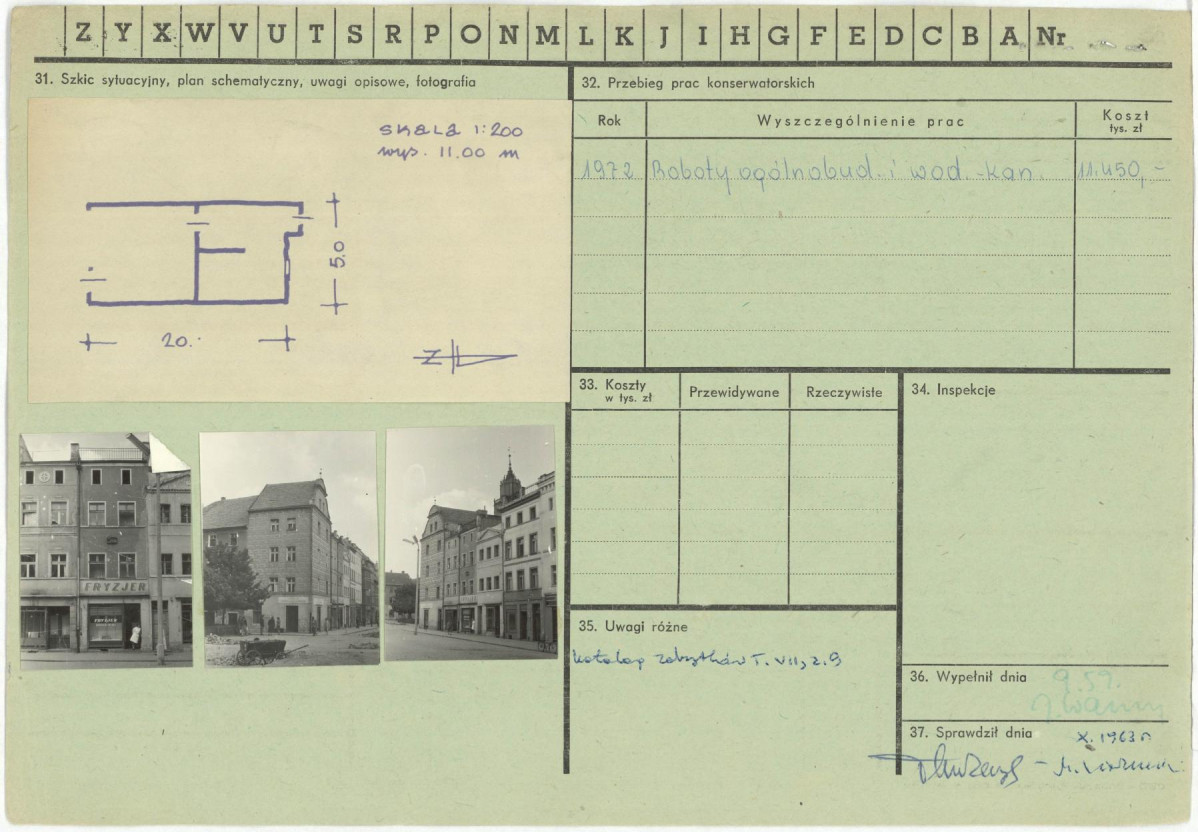 Z Y X W V U T S R P O N M L K J I H G F E D C B A Nr
31. Szkic sytuacyjny, plan schematyczny, uwagi opisowe, fotografia
SKALA 1:200
wys. 11.00 m
5.0
20.
FRYZJER
32. Przebieg prac konserwatorskich
Rok
Wyszczególnienie prac
Koszt
tys. zł
1972 Roboty ogólnobud. i wod.-kan. 11.450,-
33. Koszty
w tys. zł
Przewidywane
Rzeczywiste
34. Inspekcje
35. Uwagi różne
Katalog zabytków T. VII, z. 9
36. Wypełnił dnia
9.57.
37. Sprawdził dnia
X. 1963 r